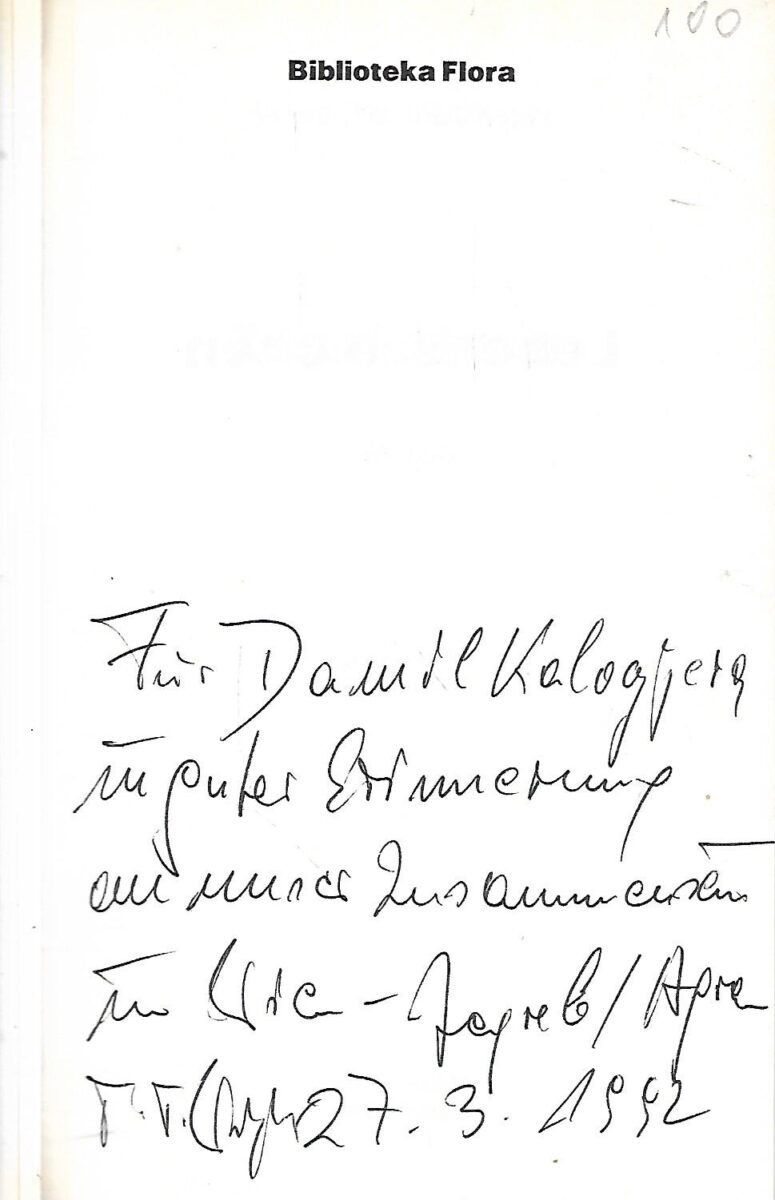 100
Biblioteka Flora
Für Damil Kalogjera
in guter Erinnerung
an unser Zusammensein
in Wien – Zagreb / Agram
27. 3. 1992